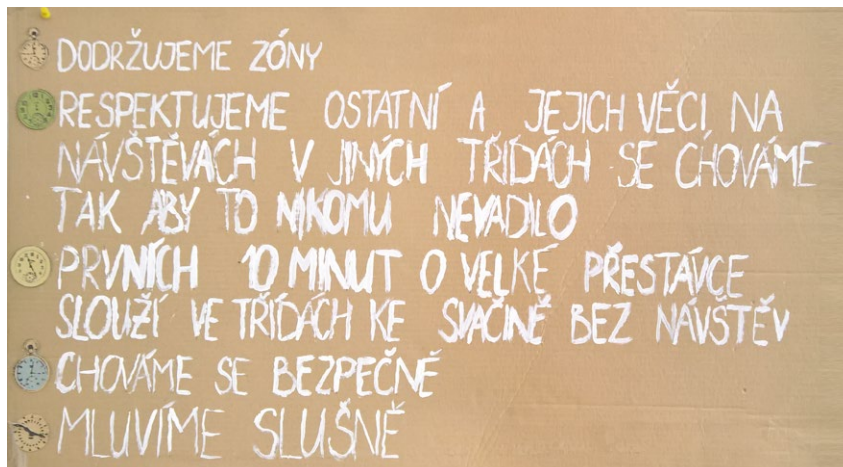 DODRŽUJEME ZÓNY
RESPEKTUJEME OSTATNÍ A JEJICH VĚCI, NA
NÁVŠTĚVÁCH V JINÝCH TŘÍDÁCH SE CHOVÁME
TAK ABY TO NIKOMU NEVADILO
PRVNÍCH 10 MINUT O VELKÉ PŘESTÁVCE
SLOUŽÍ VE TŘÍDÁCH KE SVAČINĚ BEZ NÁVŠTĚV
CHOVÁME SE BEZPEČNĚ
MLUVÍME SLUŠNĚ